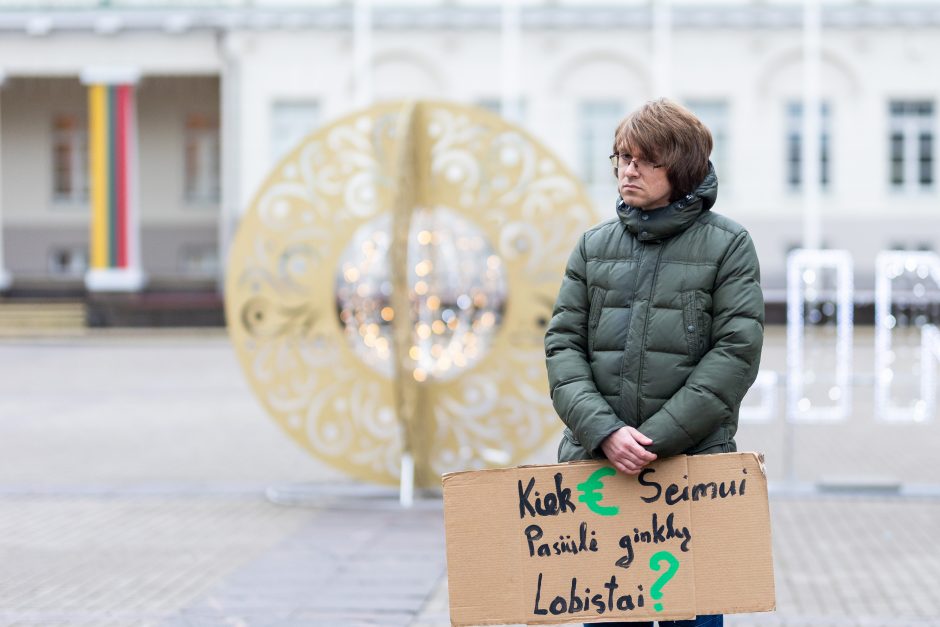 Kiek € Seimui
Pasiūlė ginklų
Lobistai?